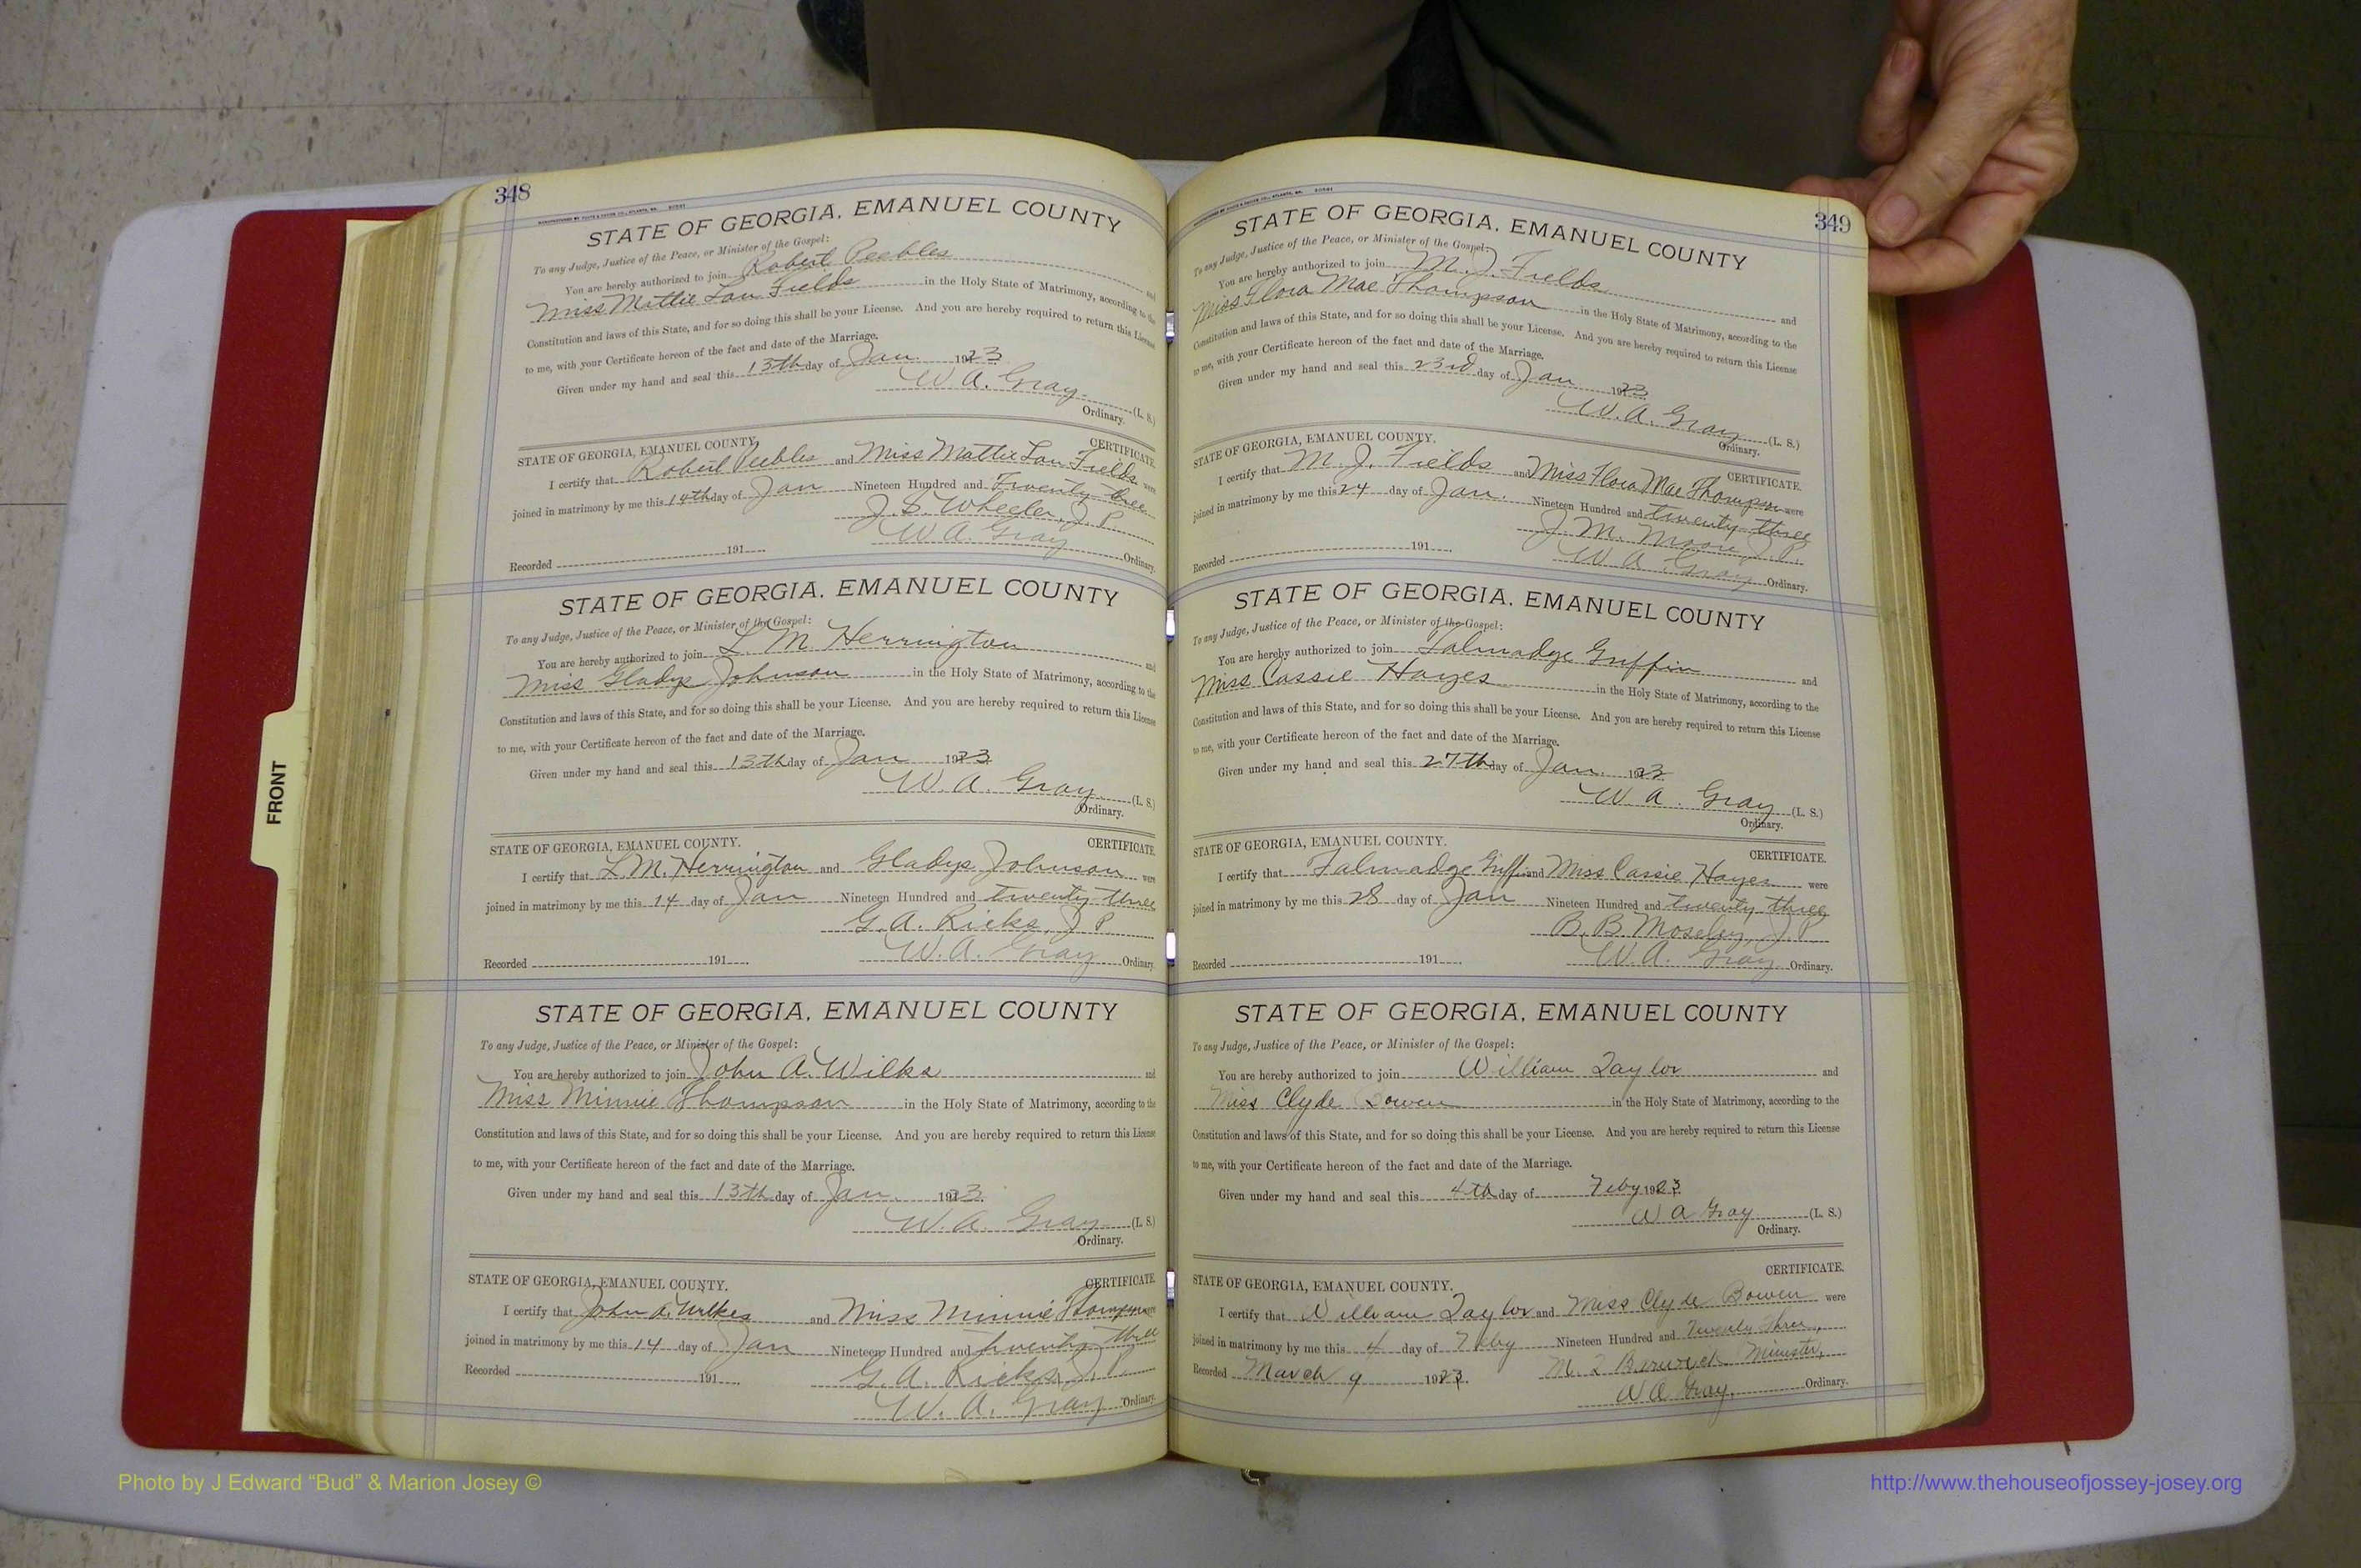 348
STATE OF GEORGIA, EMANUEL COUNTY
To any Judge, Justice of the Peace, or Minister of the Gospel:
You are hereby authorized to join Robert Peebles and
Miss Mattie Lou Fields in the Holy State of Matrimony, according to the
Constitution and laws of this State, and for so doing this shall be your License. And you are hereby required to return this License
to me, with your Certificate hereon of the fact and date of the Marriage.
Given under my hand and seal this 13th day of Jan. 1923
W. A. Gray (L. S.)
Ordinary.
STATE OF GEORGIA, EMANUEL COUNTY. CERTIFICATE.
I certify that Robert Peebles and Miss Mattie Lou Fields were
joined in matrimony by me this 14th day of Jan Nineteen Hundred and Twenty three
J. S. Wheeler, J. P.
Recorded 191 W. A. Gray Ordinary.
STATE OF GEORGIA, EMANUEL COUNTY
To any Judge, Justice of the Peace, or Minister of the Gospel:
You are hereby authorized to join L. M. Herrington and
Miss Gladys Johnson in the Holy State of Matrimony, according to the
Constitution and laws of this State, and for so doing this shall be your License. And you are hereby required to return this License
to me, with your Certificate hereon of the fact and date of the Marriage.
Given under my hand and seal this 13th day of Jan 1923
W. A. Gray (L. S.)
Ordinary.
STATE OF GEORGIA, EMANUEL COUNTY. CERTIFICATE.
I certify that L. M. Herrington and Gladys Johnson were
joined in matrimony by me this 14 day of Jan Nineteen Hundred and twenty three
G. A. Ricks, J. P.
Recorded 191 W. A. Gray Ordinary.
STATE OF GEORGIA, EMANUEL COUNTY
To any Judge, Justice of the Peace, or Minister of the Gospel:
You are hereby authorized to join John A. Wilks and
Miss Minnie Thompson in the Holy State of Matrimony, according to the
Constitution and laws of this State, and for so doing this shall be your License. And you are hereby required to return this License
to me, with your Certificate hereon of the fact and date of the Marriage.
Given under my hand and seal this 13th day of Jan. 1923.
W. A. Gray (L. S.)
Ordinary.
STATE OF GEORGIA, EMANUEL COUNTY. CERTIFICATE.
I certify that John A. Wilkes and Miss Minnie Thompson were
joined in matrimony by me this 14 day of Jan Nineteen Hundred and twenty three
Recorded 191 G. A. Ricks, J. P.
W. A. Gray Ordinary.
349
STATE OF GEORGIA, EMANUEL COUNTY
To any Judge, Justice of the Peace, or Minister of the Gospel:
You are hereby authorized to join M. J. Fields and
Miss Flora Mae Thompson in the Holy State of Matrimony, according to the
Constitution and laws of this State, and for so doing this shall be your License. And you are hereby required to return this License
to me, with your Certificate hereon of the fact and date of the Marriage.
Given under my hand and seal this 23rd day of Jan 1923
W. A. Gray (L. S.)
Ordinary.
STATE OF GEORGIA, EMANUEL COUNTY. CERTIFICATE.
I certify that M. J. Fields and Miss Flora Mae Thompson were
joined in matrimony by me this 24 day of Jan. Nineteen Hundred and twenty three
J. M. Moore J. P.
Recorded 191 W. A. Gray Ordinary.
STATE OF GEORGIA, EMANUEL COUNTY
To any Judge, Justice of the Peace, or Minister of the Gospel:
You are hereby authorized to join Talmadge Griffin and
Miss Cassie Hayes in the Holy State of Matrimony, according to the
Constitution and laws of this State, and for so doing this shall be your License. And you are hereby required to return this License
to me, with your Certificate hereon of the fact and date of the Marriage.
Given under my hand and seal this 27th day of Jan. 1923
W. A. Gray (L. S.)
Ordinary.
STATE OF GEORGIA, EMANUEL COUNTY. CERTIFICATE.
I certify that Talmadge Griffin and Miss Cassie Hayes were
joined in matrimony by me this 28 day of Jan Nineteen Hundred and twenty three
B. B. Moseley, J. P.
Recorded 191 W. A. Gray Ordinary.
STATE OF GEORGIA, EMANUEL COUNTY
To any Judge, Justice of the Peace, or Minister of the Gospel:
You are hereby authorized to join William Taylor and
Miss Clyde Bowen in the Holy State of Matrimony, according to the
Constitution and laws of this State, and for so doing this shall be your License. And you are hereby required to return this License
to me, with your Certificate hereon of the fact and date of the Marriage.
Given under my hand and seal this 4th day of Feby 1923
W A Gray (L. S.)
Ordinary.
STATE OF GEORGIA, EMANUEL COUNTY. CERTIFICATE.
I certify that William Taylor and Miss Clyde Bowen were
joined in matrimony by me this 4 day of Feby Nineteen Hundred and Twenty Three,
Recorded March 9 1923. Minister,
W A Gray. Ordinary.
FRONT
Photo by J Edward “Bud” & Marion Josey ©
http://www.thehouseofjossey-josey.org